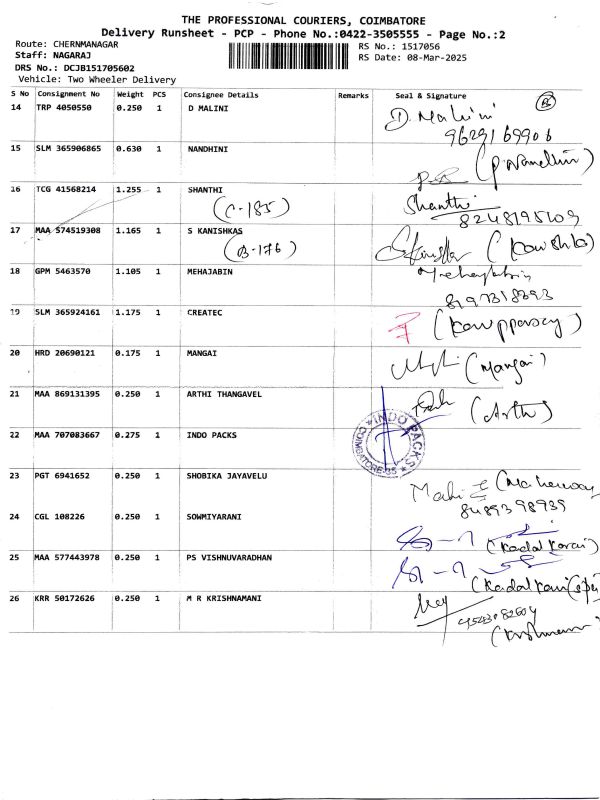 THE PROFESSIONAL COURIERS, COIMBATORE
Delivery Runsheet - PCP - Phone No.:0422-3505555 - Page No.:2
Route: CHERNMANAGAR
Staff: NAGARAJ
DRS No.: DCJB151705602
Vehicle: Two Wheeler Delivery
RS No.: 1517056
RS Date: 08-Mar-2025
S No Consignment No Weight PCS Consignee Details Remarks Seal & Signature
14 TRP 4050550 0.250 1 D MALINI D. Malini
9629169906
15 SLM 365906865 0.630 1 NANDHINI (P. Nandhini)
16 TCG 41568214 1.255 1 SHANTHI Shanthi
(C-185) 8248195109
17 MAA 574519308 1.165 1 S KANISHKAS
(B-176)
18 GPM 5463570 1.105 1 MEHAJABIN
8197318393
19 SLM 365924161 1.175 1 CREATEC (Karupparay)
20 HRD 20690121 0.175 1 MANGAI (Mangai)
21 MAA 869131395 0.250 1 ARTHI THANGAVEL (Arthi)
22 MAA 707083667 0.275 1 INDO PACKS INDO PACKS COIMBATORE-35
23 PGT 6941652 0.250 1 SHOBIKA JAYAVELU
8489398939
24 CGL 108226 0.250 1 SOWMIYARANI
(Kadal Karai)
25 MAA 577443978 0.250 1 PS VISHNUVARADHAN
26 KRR 50172626 0.250 1 M R KRISHNAMANI